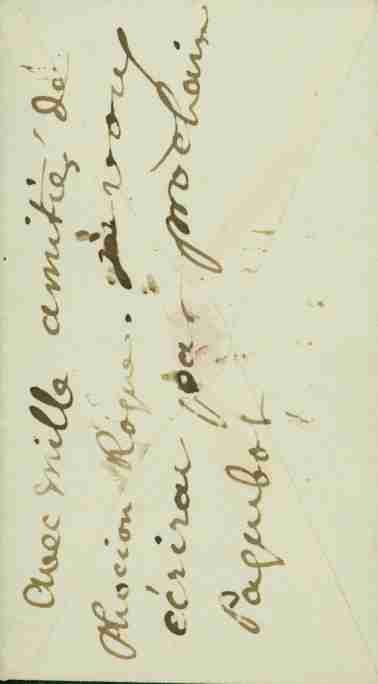 avec mille amitiés de
Phocion Roque.. je vous
écrirai par prochain
Paquebot